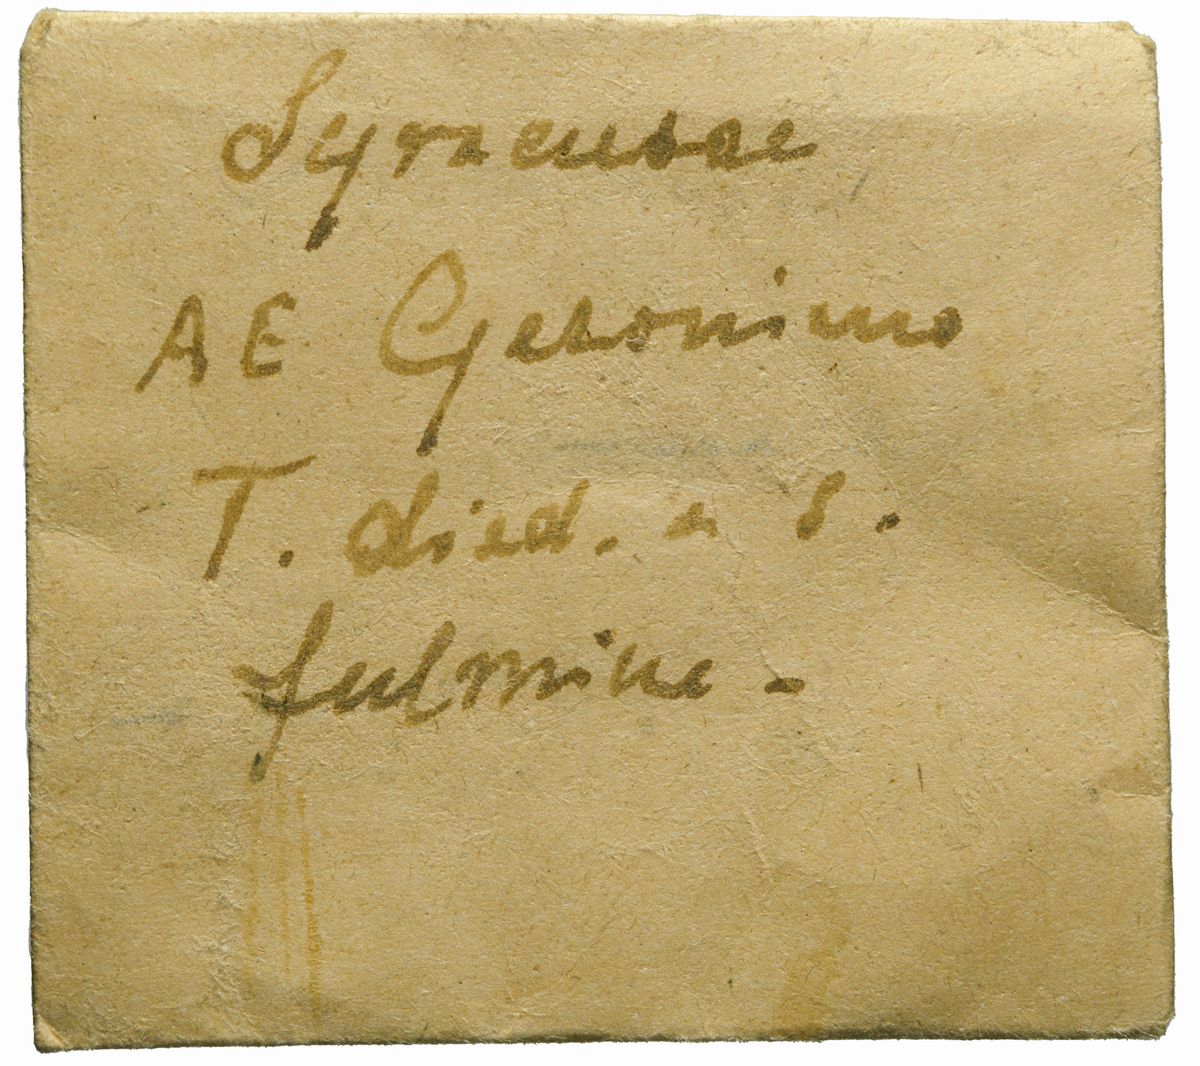 Syracusae
AE Geronimo
T. died. a s.
fulmine -